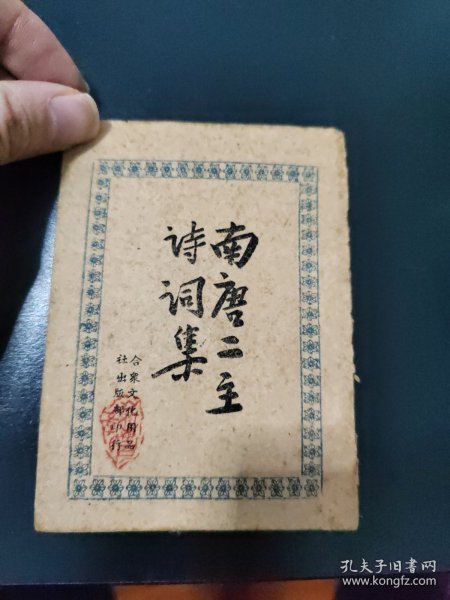 南唐二主
诗词集
合众文化用品
社出版部印行
孔夫子旧书网
www.kongfz.com